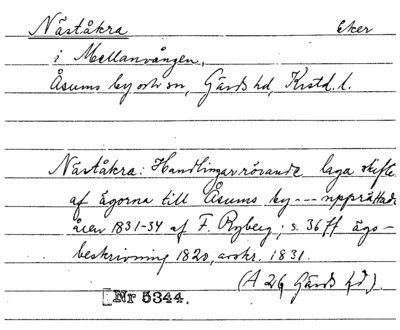 Näståkra åker
i Mellanvången,
Åsums by och sn, Gärds hd, Krstd. l.
Näståkra: Handlingar rörande laga skifte
af ägorna till Åsums by --- upprättade
åren 1831-34 af F. Ryberg; s. 36 ff ägo-
beskrivning 1820, avskr. 1831.
(A 26 Gärds hd).
Nr 5344.